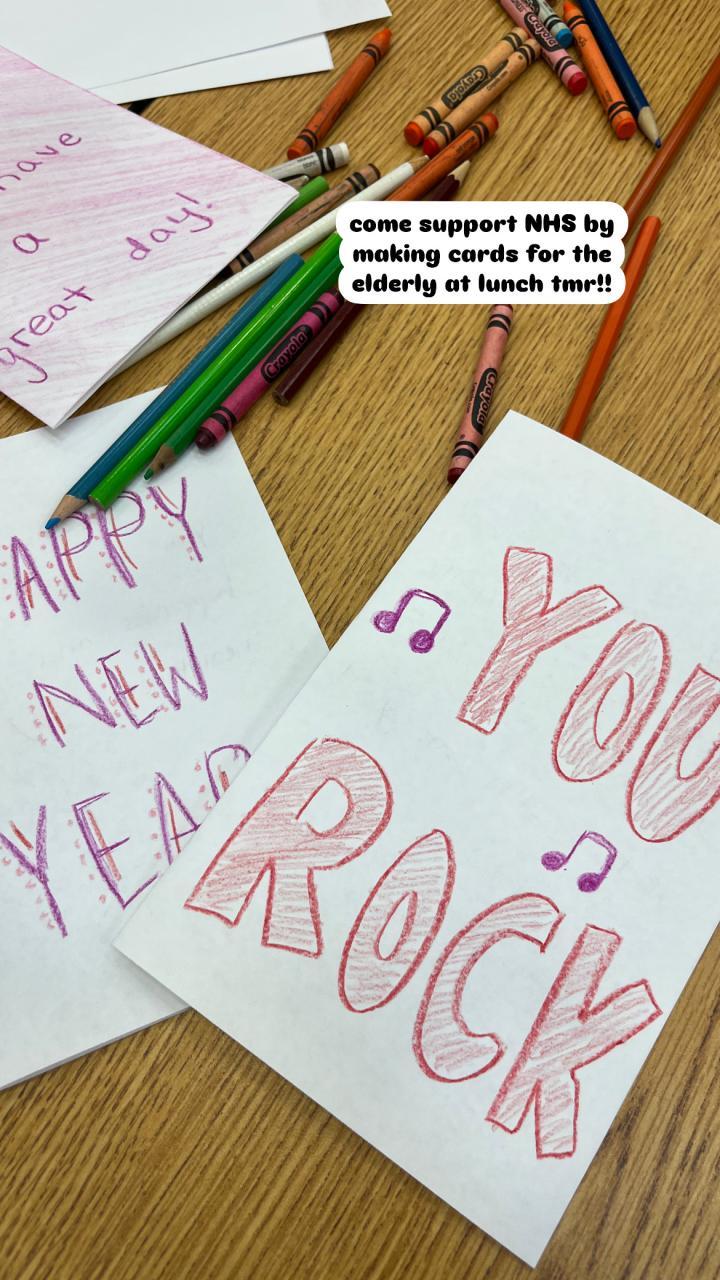 come support NHS by
making cards for the
elderly at lunch tmr!!
have
a
great day!
HAPPY
NEW
YEAR
YOU
ROCK
Crayola
Crayola
Crayola
Crayola